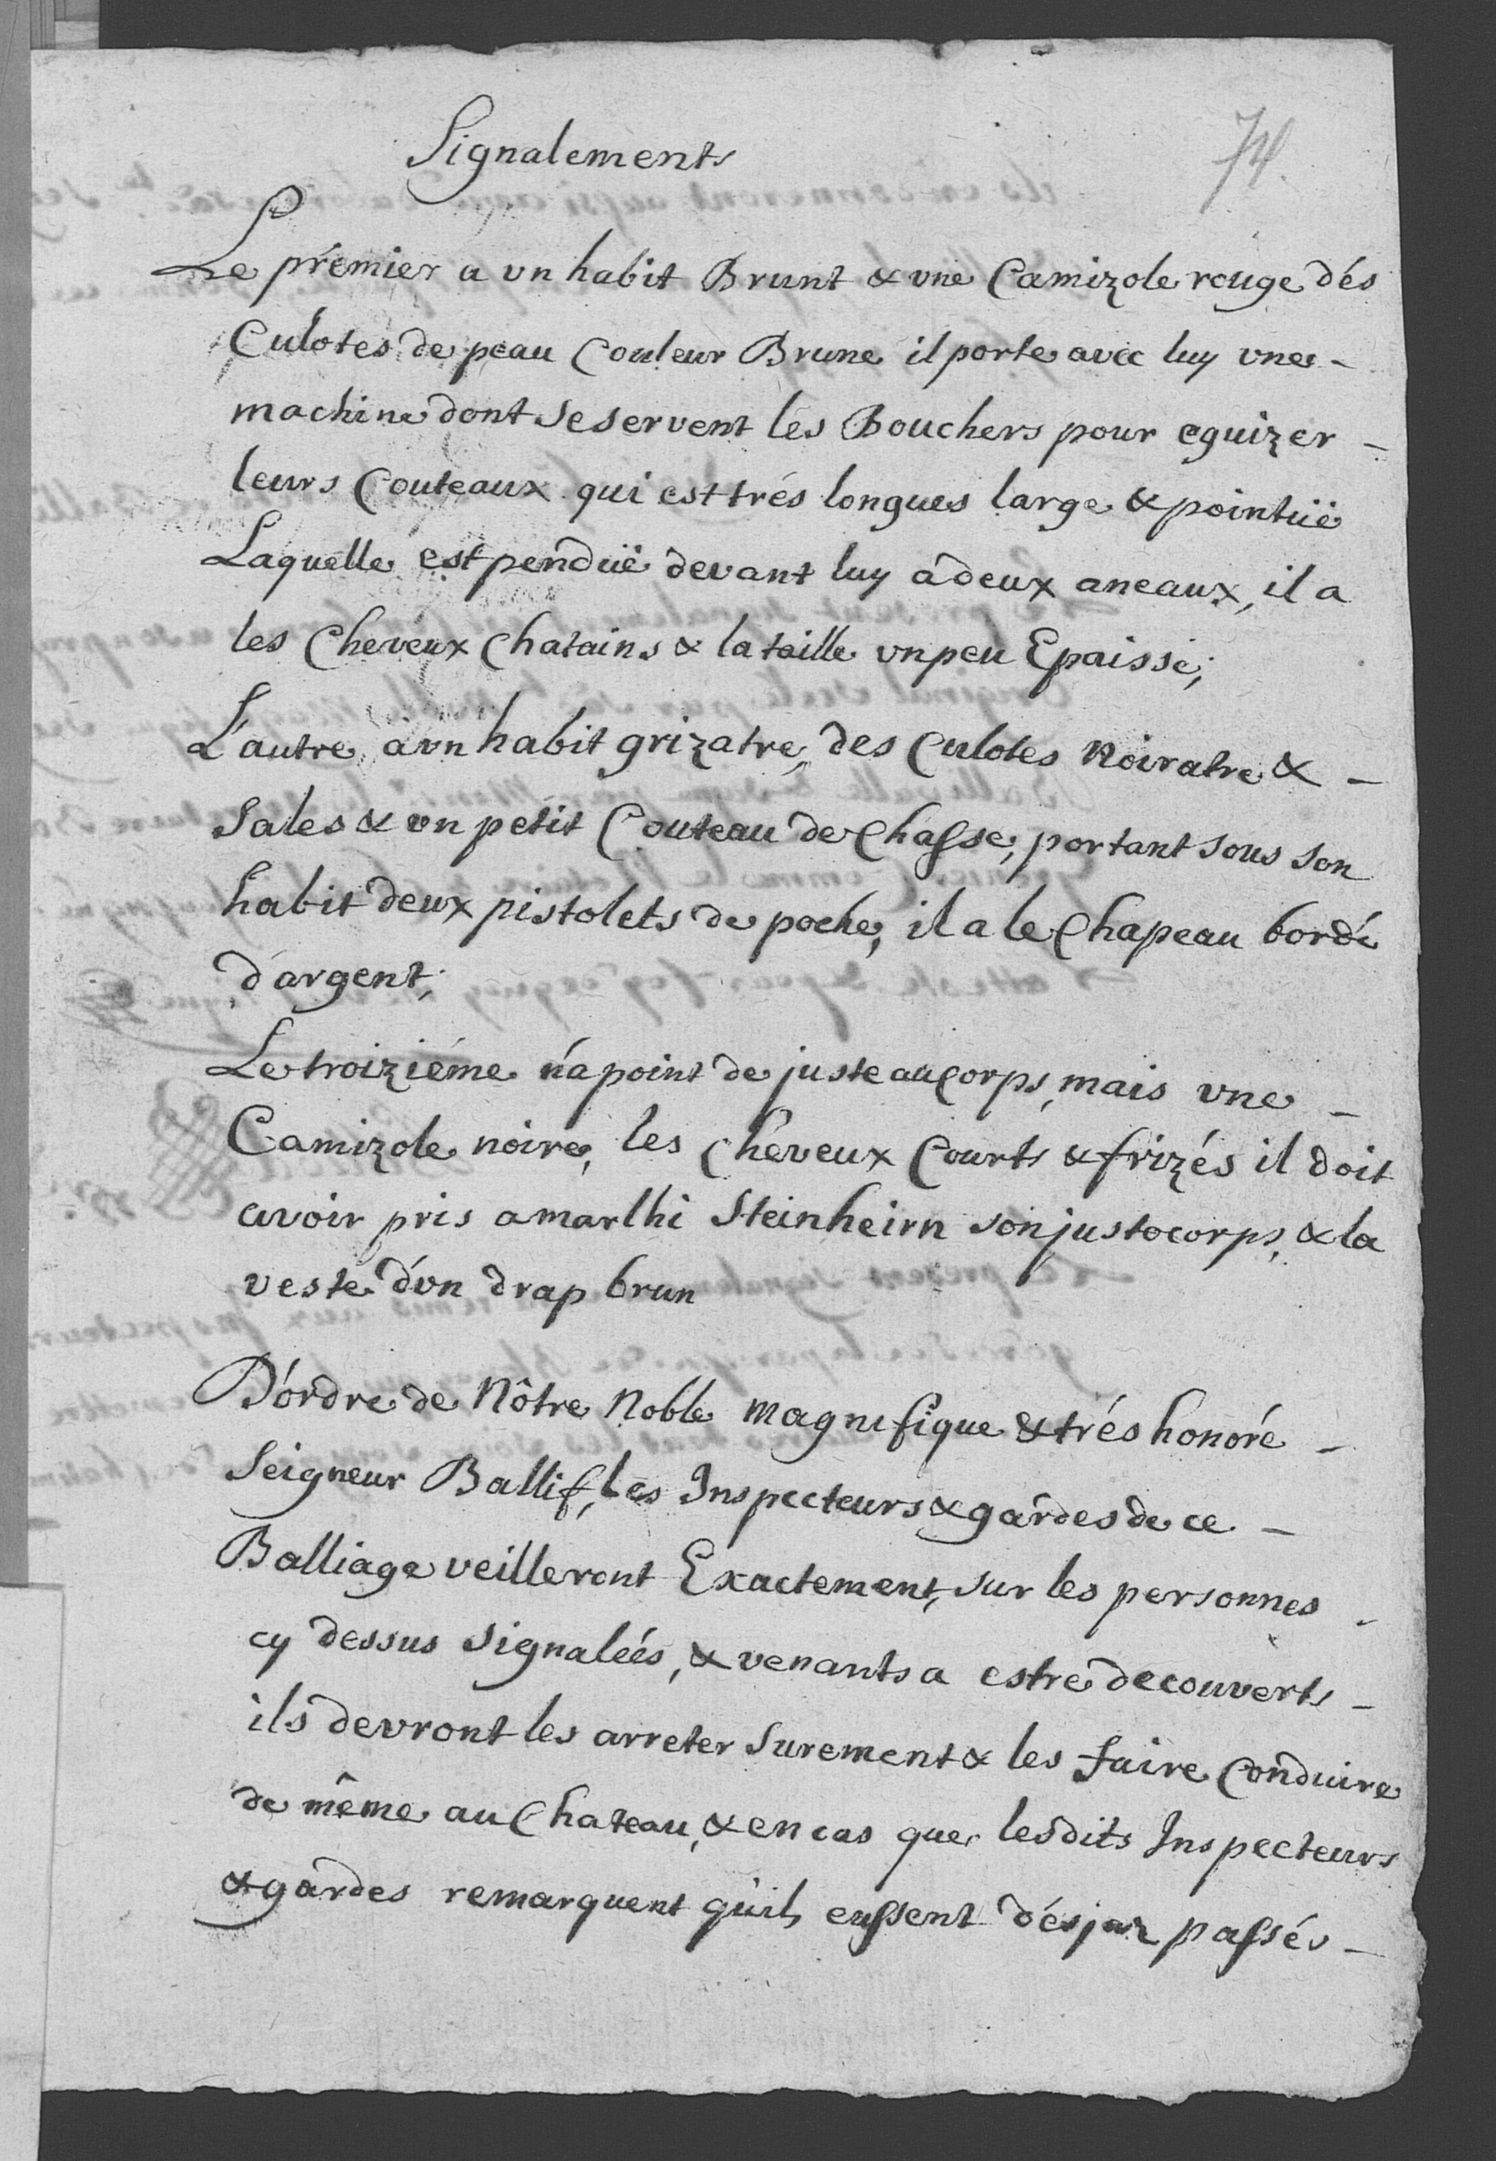 74.
Signalements
Le premier a vn habit Brunt & vne Camizole rouge dés
Culotes de peau Couleur Brune il porte avec luy vne -
machine dont se servent lés Bouchers pour eguizer -
leurs Couteaux qui est trés longues large & pointuë
Laquelle est penduë devant luy â deux aneaux, il a
les Cheveux Chatains & la taille vn peu Epaisse;
L'autre a vn habit grizatre, des Culotes Noiratre & -
Sales & vn petit Couteau de Chasse, portant sous son
habit deux pistolets de poche, il a le Chapeau bordé
d'argent;
Le troiziéme n'a point de juste au corps, mais vne -
Camizole noire, les Cheveux Courts & frizés il doit
avoir pris a marlhi Steinheirn son justocorps, & la
veste d'vn drap brun
D'ordre de Nôtre Noble magnifique & trés honoré -
Seigneur Ballif, les Inspecteurs & gardes de ce -
Balliage veilleront Exactement, sur les personnes -
cy dessus signaleés, & venants a estre decouverts -
ils devront les arreter surement & les faire Conduire
de même au Chateau, & en cas que lesdits Inspecteurs
& gardes remarquent qu'ils eussent désja passés -